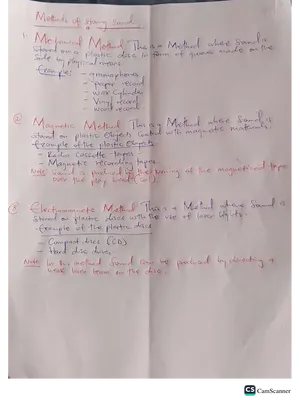 Methods of storing Sound
1. Mechanical Method This is a Method where Sound is
stored on a plastic disc in form of grooves made on the
side by physical means.
Example: - gramophones
- paper record
- wax Cylinder
- Vinyl record
record
② Magnetic Method This is a Method where Sound is
stored on plastic Objects coated with magnetic materials
Example of the plastic Objects
- Radio Cassette tapes
- Magnetic recording tapes
Note sound is produced by the running of the magnetized tapes
over the play head
③ Method This is a Method where Sound is
stored on plastic discs with the use of laser lights.
- Example of the plastic discs
- Compact discs (CD)
- Hard disc drives
Note: In this method Sound can be produced by directing a
weak laser beam on the disc.
CS CamScanner